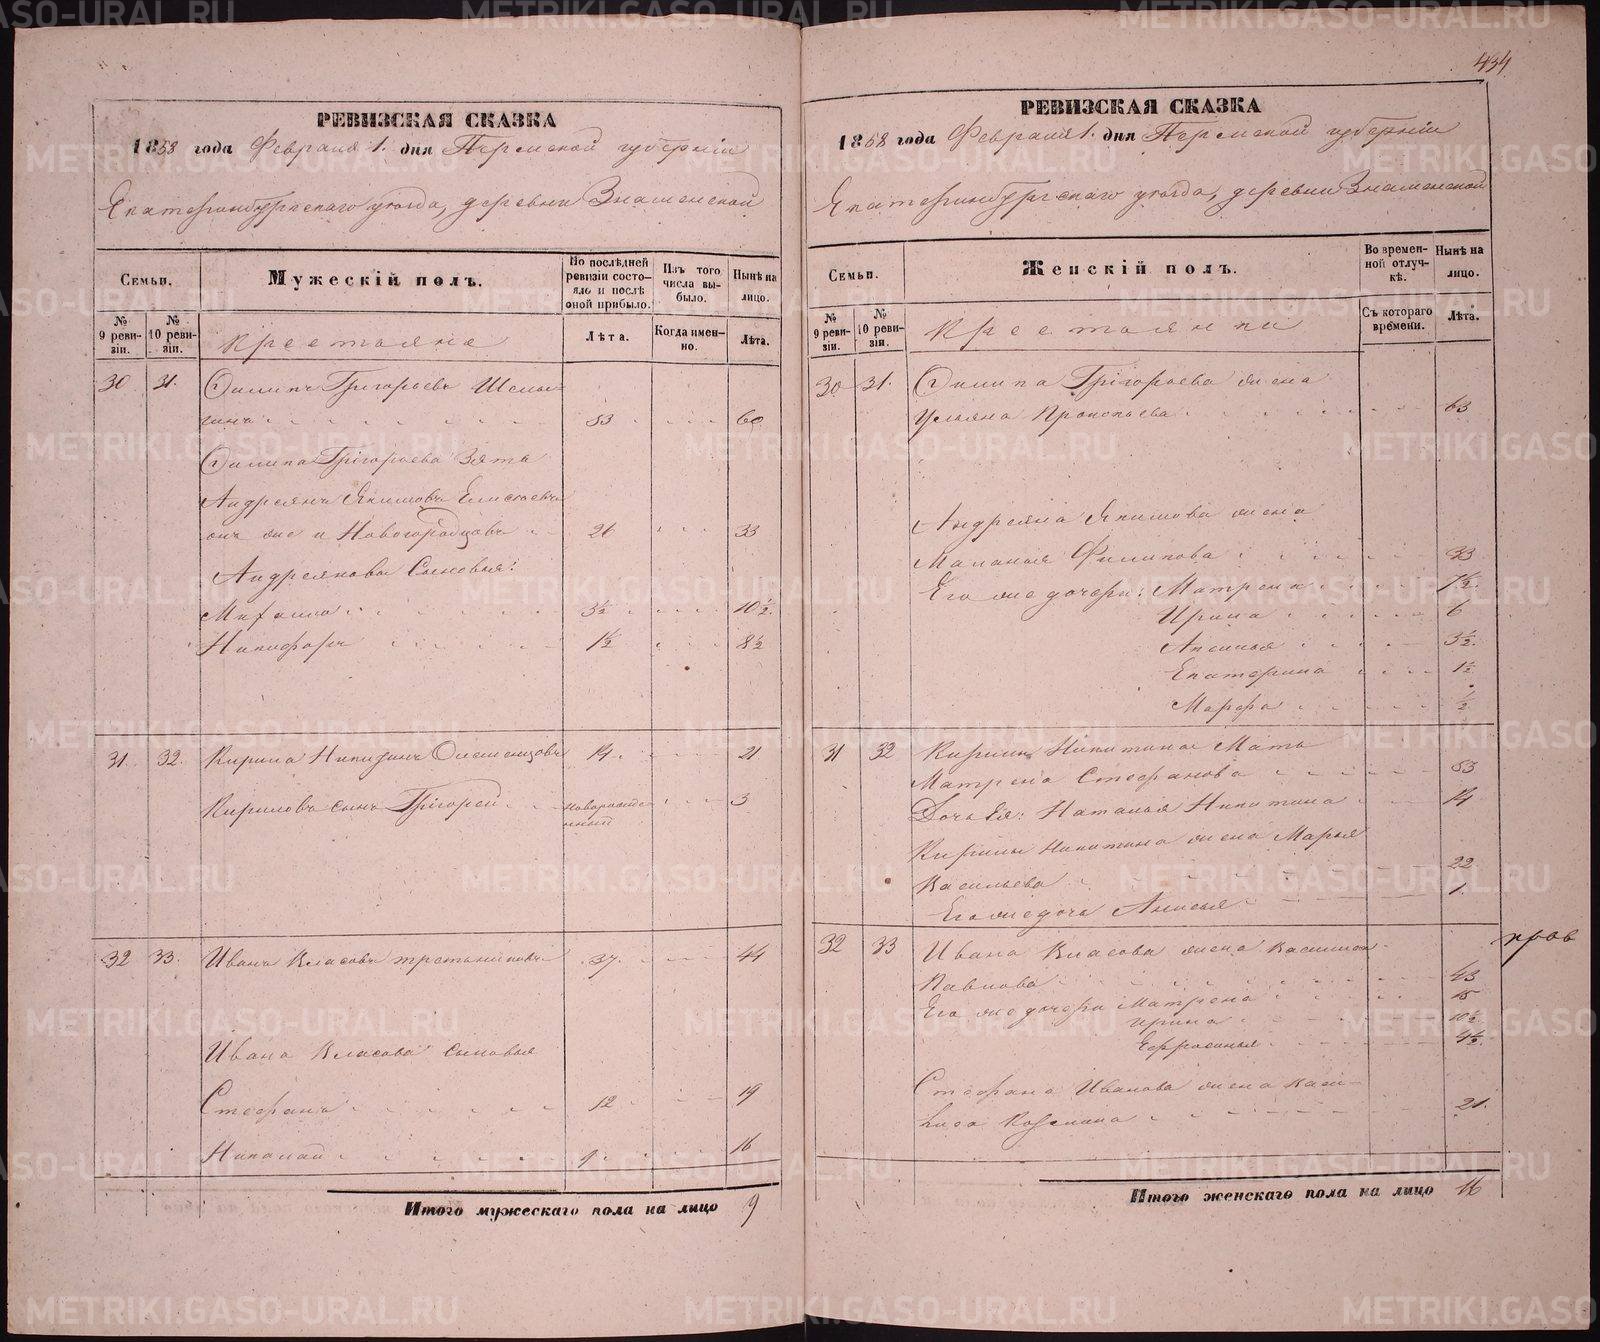 434
РЕВИЗСКАЯ СКАЗКА
1858 года Февраля 1. дня Пермской губернiи
Екатеринбургскаго уѣзда, деревни Знаменской
Семьи.
Мужескiй полъ.
По послѣдней ревизiи состояло и послѣ оной прибыло.
Изъ того числа выбыло.
Нынѣ на лицо.
№ 9 ревизiи.
№ 10 ревизiи.
Крестьяне
Лѣта.
Когда именно.
Лѣта.
30 31. Филипъ Григорьевъ
53 60
Филипа Григорьева Зять
Андреянъ Якимовъ Елисѣевъ
онъ же и Новогородцовъ 26 33
Андреяновы Сыновья:
Михаило 3½ 10½.
Никифоръ 1½ 8½
31. 32. Кирила Никитинъ 14. 21
Кириловъ сынъ Григорей новорожденный 3
32 33. Иванъ Власовъ Третьяковъ 37. 44
Ивана Власова сыновья
Стефанъ 12 19
Николай 9. 16
Итого мужескаго пола на лицо 9
РЕВИЗСКАЯ СКАЗКА
1858 года Февраля 1. дня Пермской губернiи
Екатеринбургскаго уѣзда, деревни Знаменской
Семьи.
Женскiй полъ.
Во временной отлучкѣ.
Нынѣ на лицо.
№ 9 ревизiи.
№ 10 ревизiи.
Крестьянки
Съ котораго времени.
Лѣта.
30 31. Филипа Григорьева жена
Ульяна Прокопьева 63
Андреяна Якимова жена
Маланья Филипова 33
Его же дочери: Матрена 7½.
Ирина 6
Аксинья 3½.
Екатерина 1½
Марфа ½
31 32 Кирилы Никитина Мать
Матрена Стефанова 53
Дочь Ея: Наталья Никитина 14
Кирилы Никитина жена Марья
Васильева 22
Его же дочь Анисья 1.
32 33 Ивана Власова жена
Павлова 43
Его же дочери Матрена 15
Ирина 10½
Ефросинья 4½.
Стефана Иванова жена Васи-
лиса 21.
Итого женскаго пола на лицо 16